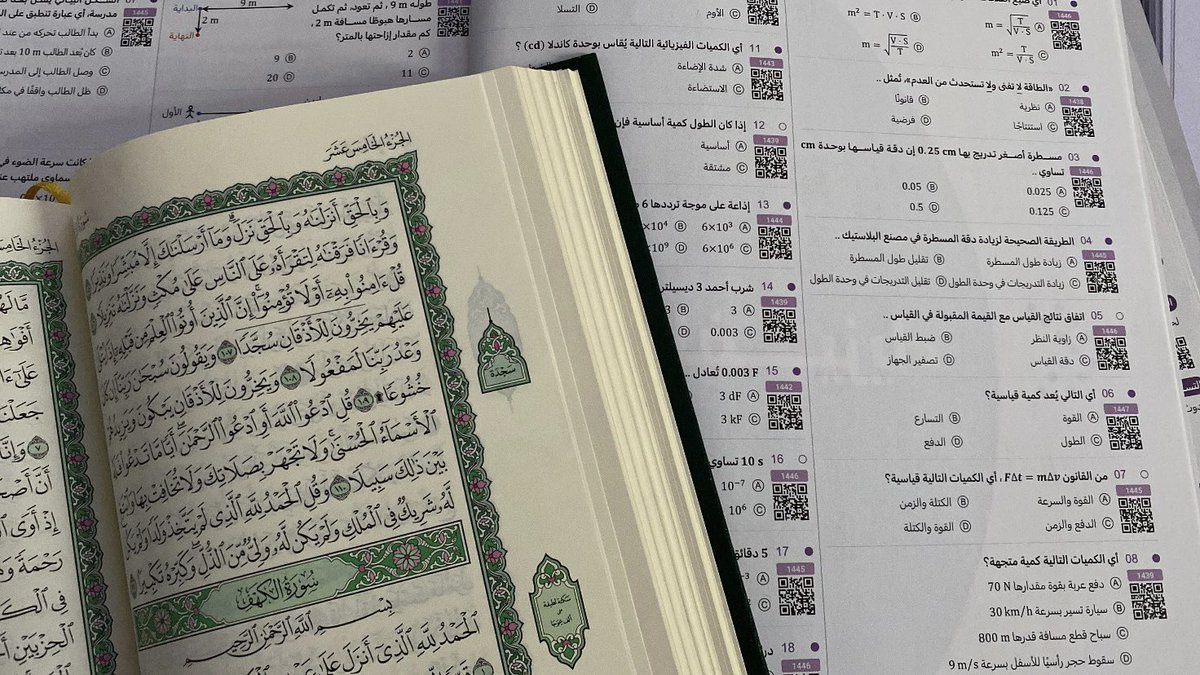 01
1446
m = √(T/(V·S)) Ⓐ
m² = T·V·S Ⓑ
m² = T/(V·S) Ⓒ
m = √(V·S/T) Ⓓ
02 «الطاقة لا تفنى ولا تستحدث من العدم»، تُمثل ..
1438
Ⓐ نظرية
Ⓑ قانونًا
Ⓒ استنتاجًا
Ⓓ فرضية
03 مسطرة أصغر تدريج بها 0.25 cm إن دقة قياسها بوحدة cm
تساوي ..
1446
Ⓐ 0.025
Ⓑ 0.05
Ⓒ 0.125
Ⓓ 0.5
04 الطريقة الصحيحة لزيادة دقة المسطرة في مصنع البلاستيك ..
1445
Ⓐ زيادة طول المسطرة
Ⓑ تقليل طول المسطرة
Ⓒ زيادة التدريجات في وحدة الطول
Ⓓ تقليل التدريجات في وحدة الطول
05 اتفاق نتائج القياس مع القيمة المقبولة في القياس ..
1446
Ⓐ زاوية النظر
Ⓑ ضبط القياس
Ⓒ دقة القياس
Ⓓ تصفير الجهاز
06 أي التالي يُعد كمية قياسية؟
1447
Ⓐ القوة
Ⓑ التسارع
Ⓒ الطول
Ⓓ الدفع
07 من القانون FΔt = mΔv ، أي الكميات التالية قياسية؟
1445
Ⓐ القوة والسرعة
Ⓑ الكتلة والزمن
Ⓒ الدفع والزمن
Ⓓ القوة والكتلة
08 أي الكميات التالية كمية متجهة؟
1439
Ⓐ دفع عربة بقوة مقدارها 70 N
Ⓑ سيارة تسير بسرعة 30 km/h
Ⓒ سباح قطع مسافة قدرها 800 m
Ⓓ سقوط حجر رأسيًا للأسفل بسرعة 9 m/s
Ⓒ الأوم
Ⓓ التسلا
11 أي الكميات الفيزيائية التالية يُقاس بوحدة كاندلا (cd) ؟
1443
Ⓐ شدة الإضاءة
Ⓒ الاستضاءة
12 إذا كان الطول كمية أساسية فإن
1439
Ⓐ أساسية
Ⓒ مشتقة
13 إذاعة على موجة ترددها 6
1444
Ⓐ 6×10³
Ⓑ ×10⁴
Ⓒ 6×10⁶
Ⓓ ×10⁹
14 شرب أحمد 3 ديسيلتر
1439
Ⓐ 3
Ⓑ 3
Ⓒ 0.003
Ⓓ
15 0.003 F تُعادل ..
1442
Ⓐ 3 dF
Ⓒ 3 kF
16 10 s تساوي
1446
Ⓐ 10⁻⁷
Ⓒ 10⁶
17 5 دقائق
1445
Ⓐ
Ⓒ
18
1446
طوله 9 m ، ثم تعود، ثم تكمل
مسارها هبوطًا مسافة 2 m،
كم مقدار إزاحتها بالمتر؟
البداية
9 m
2 m
النهاية
Ⓐ 2
Ⓑ 9
Ⓒ 11
Ⓓ 20
الأول
مدرسة، أي عبارة تنطبق على
1445
Ⓐ بدأ الطالب تحركه من عند
Ⓑ كان بُعد الطالب 10 m بعد
Ⓒ وصل الطالب إلى
Ⓓ ظل الطالب واقفًا في
كانت سرعة الضوء في
سماوي ملتهب
×10
الجزء الخامس عشر
وَبِالْحَقِّ أَنزَلْنَٰهُ وَبِالْحَقِّ نَزَلَ وَمَا أَرْسَلْنَٰكَ إِلَّا مُبَشِّرًا وَنَذِيرًا
وَقُرْءَانًا فَرَقْنَٰهُ لِتَقْرَأَهُ عَلَى النَّاسِ عَلَىٰ مُكْثٍ وَنَزَّلْنَٰهُ تَنزِيلًا
قُلْ ءَامِنُوا بِهِ أَوْ لَا تُؤْمِنُوا إِنَّ الَّذِينَ أُوتُوا الْعِلْمَ مِن قَبْلِهِ إِذَا
عَلَيْهِمْ يَخِرُّونَ لِلْأَذْقَانِ سُجَّدًا ١٠٧ وَيَقُولُونَ سُبْحَٰنَ رَبِّنَا إِن كَانَ
وَعْدُ رَبِّنَا لَمَفْعُولًا ١٠٨ وَيَخِرُّونَ لِلْأَذْقَانِ يَبْكُونَ وَيَزِيدُهُمْ
خُشُوعًا ١٠٩ قُلِ ادْعُوا اللَّهَ أَوِ ادْعُوا الرَّحْمَٰنَ أَيًّا مَّا تَدْعُوا فَلَهُ
الْأَسْمَاءُ الْحُسْنَىٰ وَلَا تَجْهَرْ بِصَلَاتِكَ وَلَا تُخَافِتْ بِهَا وَابْتَغِ
بَيْنَ ذَٰلِكَ سَبِيلًا ١١٠ وَقُلِ الْحَمْدُ لِلَّهِ الَّذِي لَمْ يَتَّخِذْ وَلَدًا وَلَمْ يَكُن
لَّهُ شَرِيكٌ فِي الْمُلْكِ وَلَمْ يَكُن لَّهُ وَلِيٌّ مِّنَ الذُّلِّ وَكَبِّرْهُ تَكْبِيرًا
سُورَةُ الْكَهْفِ
بِسْمِ اللَّهِ الرَّحْمَٰنِ الرَّحِيمِ
الْحَمْدُ لِلَّهِ الَّذِي أَنزَلَ عَلَىٰ
سَجْدَة